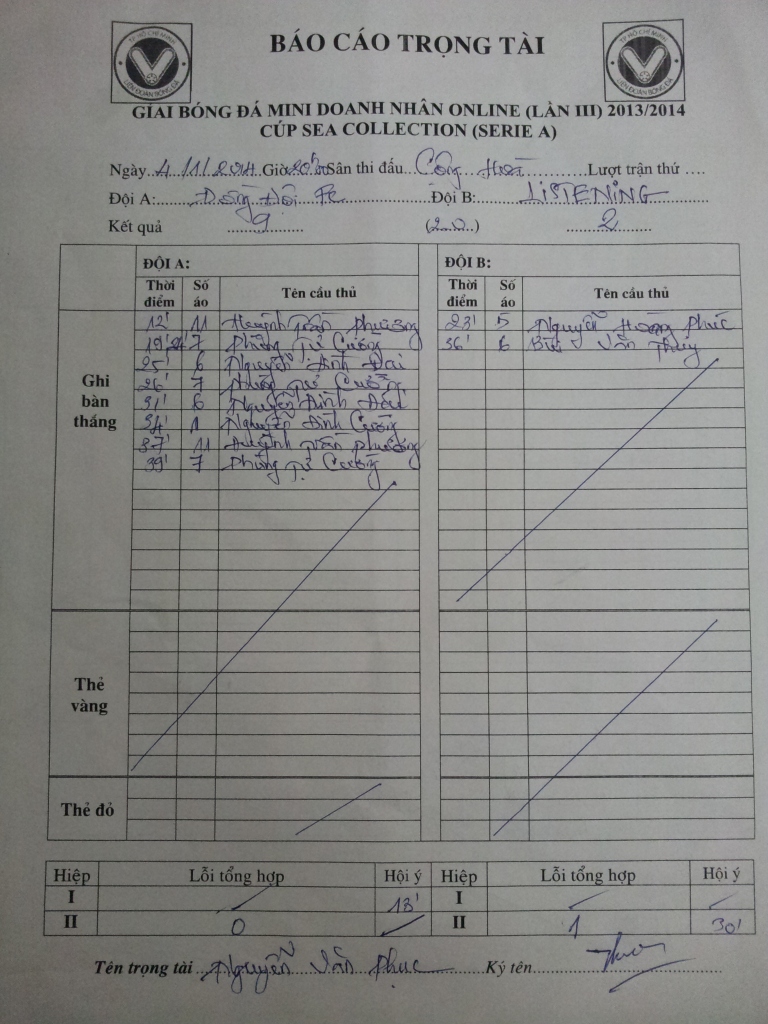 BÁO CÁO TRỌNG TÀI
TP HỒ CHÍ MINH
LIÊN ĐOÀN BÓNG ĐÁ
TP HỒ CHÍ MINH
LIÊN ĐOÀN BÓNG ĐÁ
GIẢI BÓNG ĐÁ MINI DOANH NHÂN ONLINE (LẦN III) 2013/2014
CÚP SEA COLLECTION (SERIE A)
Ngày 4/1/2014 Giờ Sân thi đấu Cộng Hoà Lượt trận thứ ....
Đội A: Đồng Đội FC Đội B: LISTENING
Kết quả 9 (2.0) 2
ĐỘI A: ĐỘI B:
Thời điểm Số áo Tên cầu thủ Thời điểm Số áo Tên cầu thủ
Ghi bàn thắng
12' 11 Huỳnh Trần Phương 23' 5 Nguyễn Hoàng Phúc
19' 7 Phùng Tử Cường 36' 6 Bùi Văn Thủy
25' 6 Nguyễn Đình Đại
26' 7 Phùng Tử Cường
31' 6 Nguyễn Đình Đại
34' 1 Nguyễn Đình Cường
37' 11 Huỳnh Trần Phương
39' 7 Phùng Tử Cường
Thẻ vàng
Thẻ đỏ
Hiệp Lỗi tổng hợp Hội ý Hiệp Lỗi tổng hợp Hội ý
I 13' I
II 0 II 1 30'
Tên trọng tài Nguyễn Văn Phục Ký tên